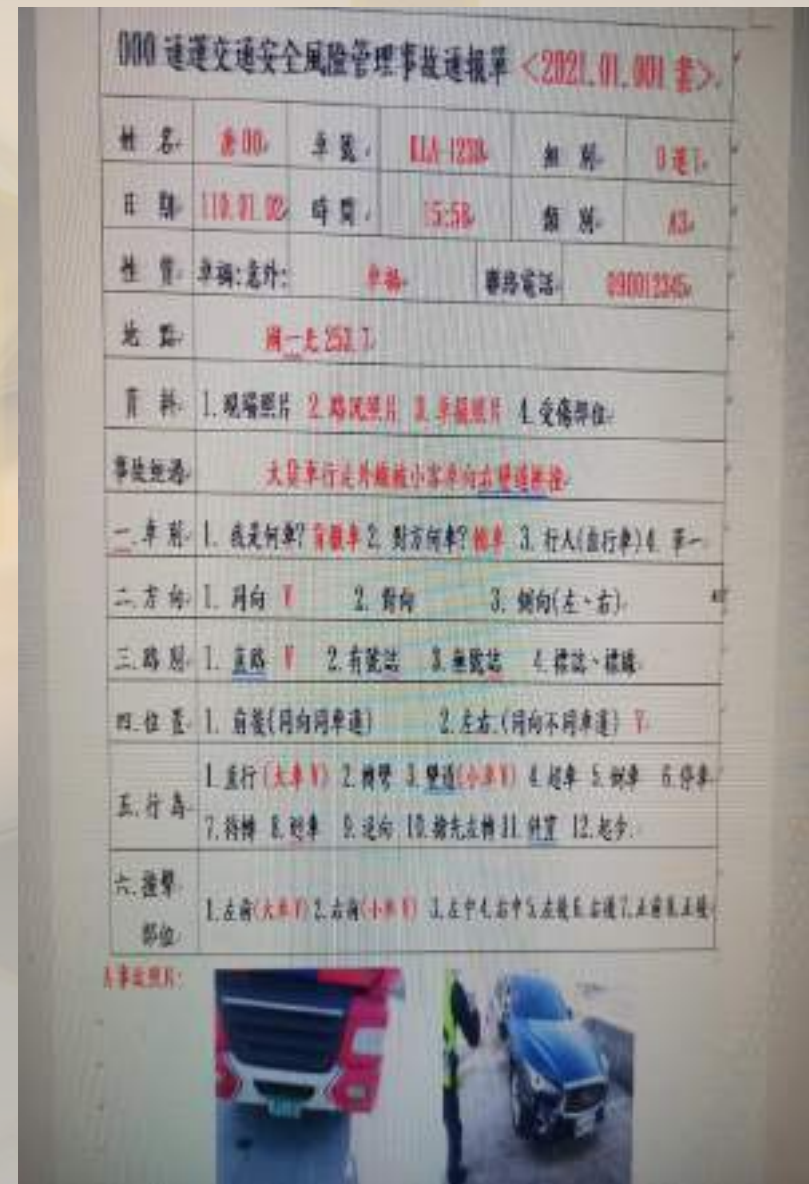 000 通運交通安全風險管理事故通報單 <2021.01.001 案>
姓 名 車 號 KLA-1238 組 別
日 期 110.01.02 時 間 15:58 類 別 A3
性 質 車禍:意外: 車禍 聯絡電話 090012345
地 點 國一北 253.7
資 料 1. 現場照片 2. 路況照片 3. 車損照片 4. 受傷部位
事故經過 大貨車行走外線被小客車向右變道擦撞
一.車 別 1. 我是何車? 2. 對方何車? 轎車 3. 行人(自行車) 4. 單一
二.方 向 1. 同向 V 2. 對向 3. 側向(左、右)
三.路 別 1. 直路 V 2. 有號誌 3. 無號誌 4. 標誌、標線
四.位 置 1. 前後(同向同車道) 2. 左右.(同向不同車道) V
五.行 為 1.直行(大車 V) 2.轉彎 3.變道(小車 V) 4.超車 5.倒車 6.停車
7.待轉 8.迴車 9.逆向 10.搶先左轉 11. 12.起步.
六.撞擊
部位 1.左前(大車 V) 2.右前(小車 V) 3.左中 4.右中 5.左後 6.右後 7.正前 8.正後
事故照片: